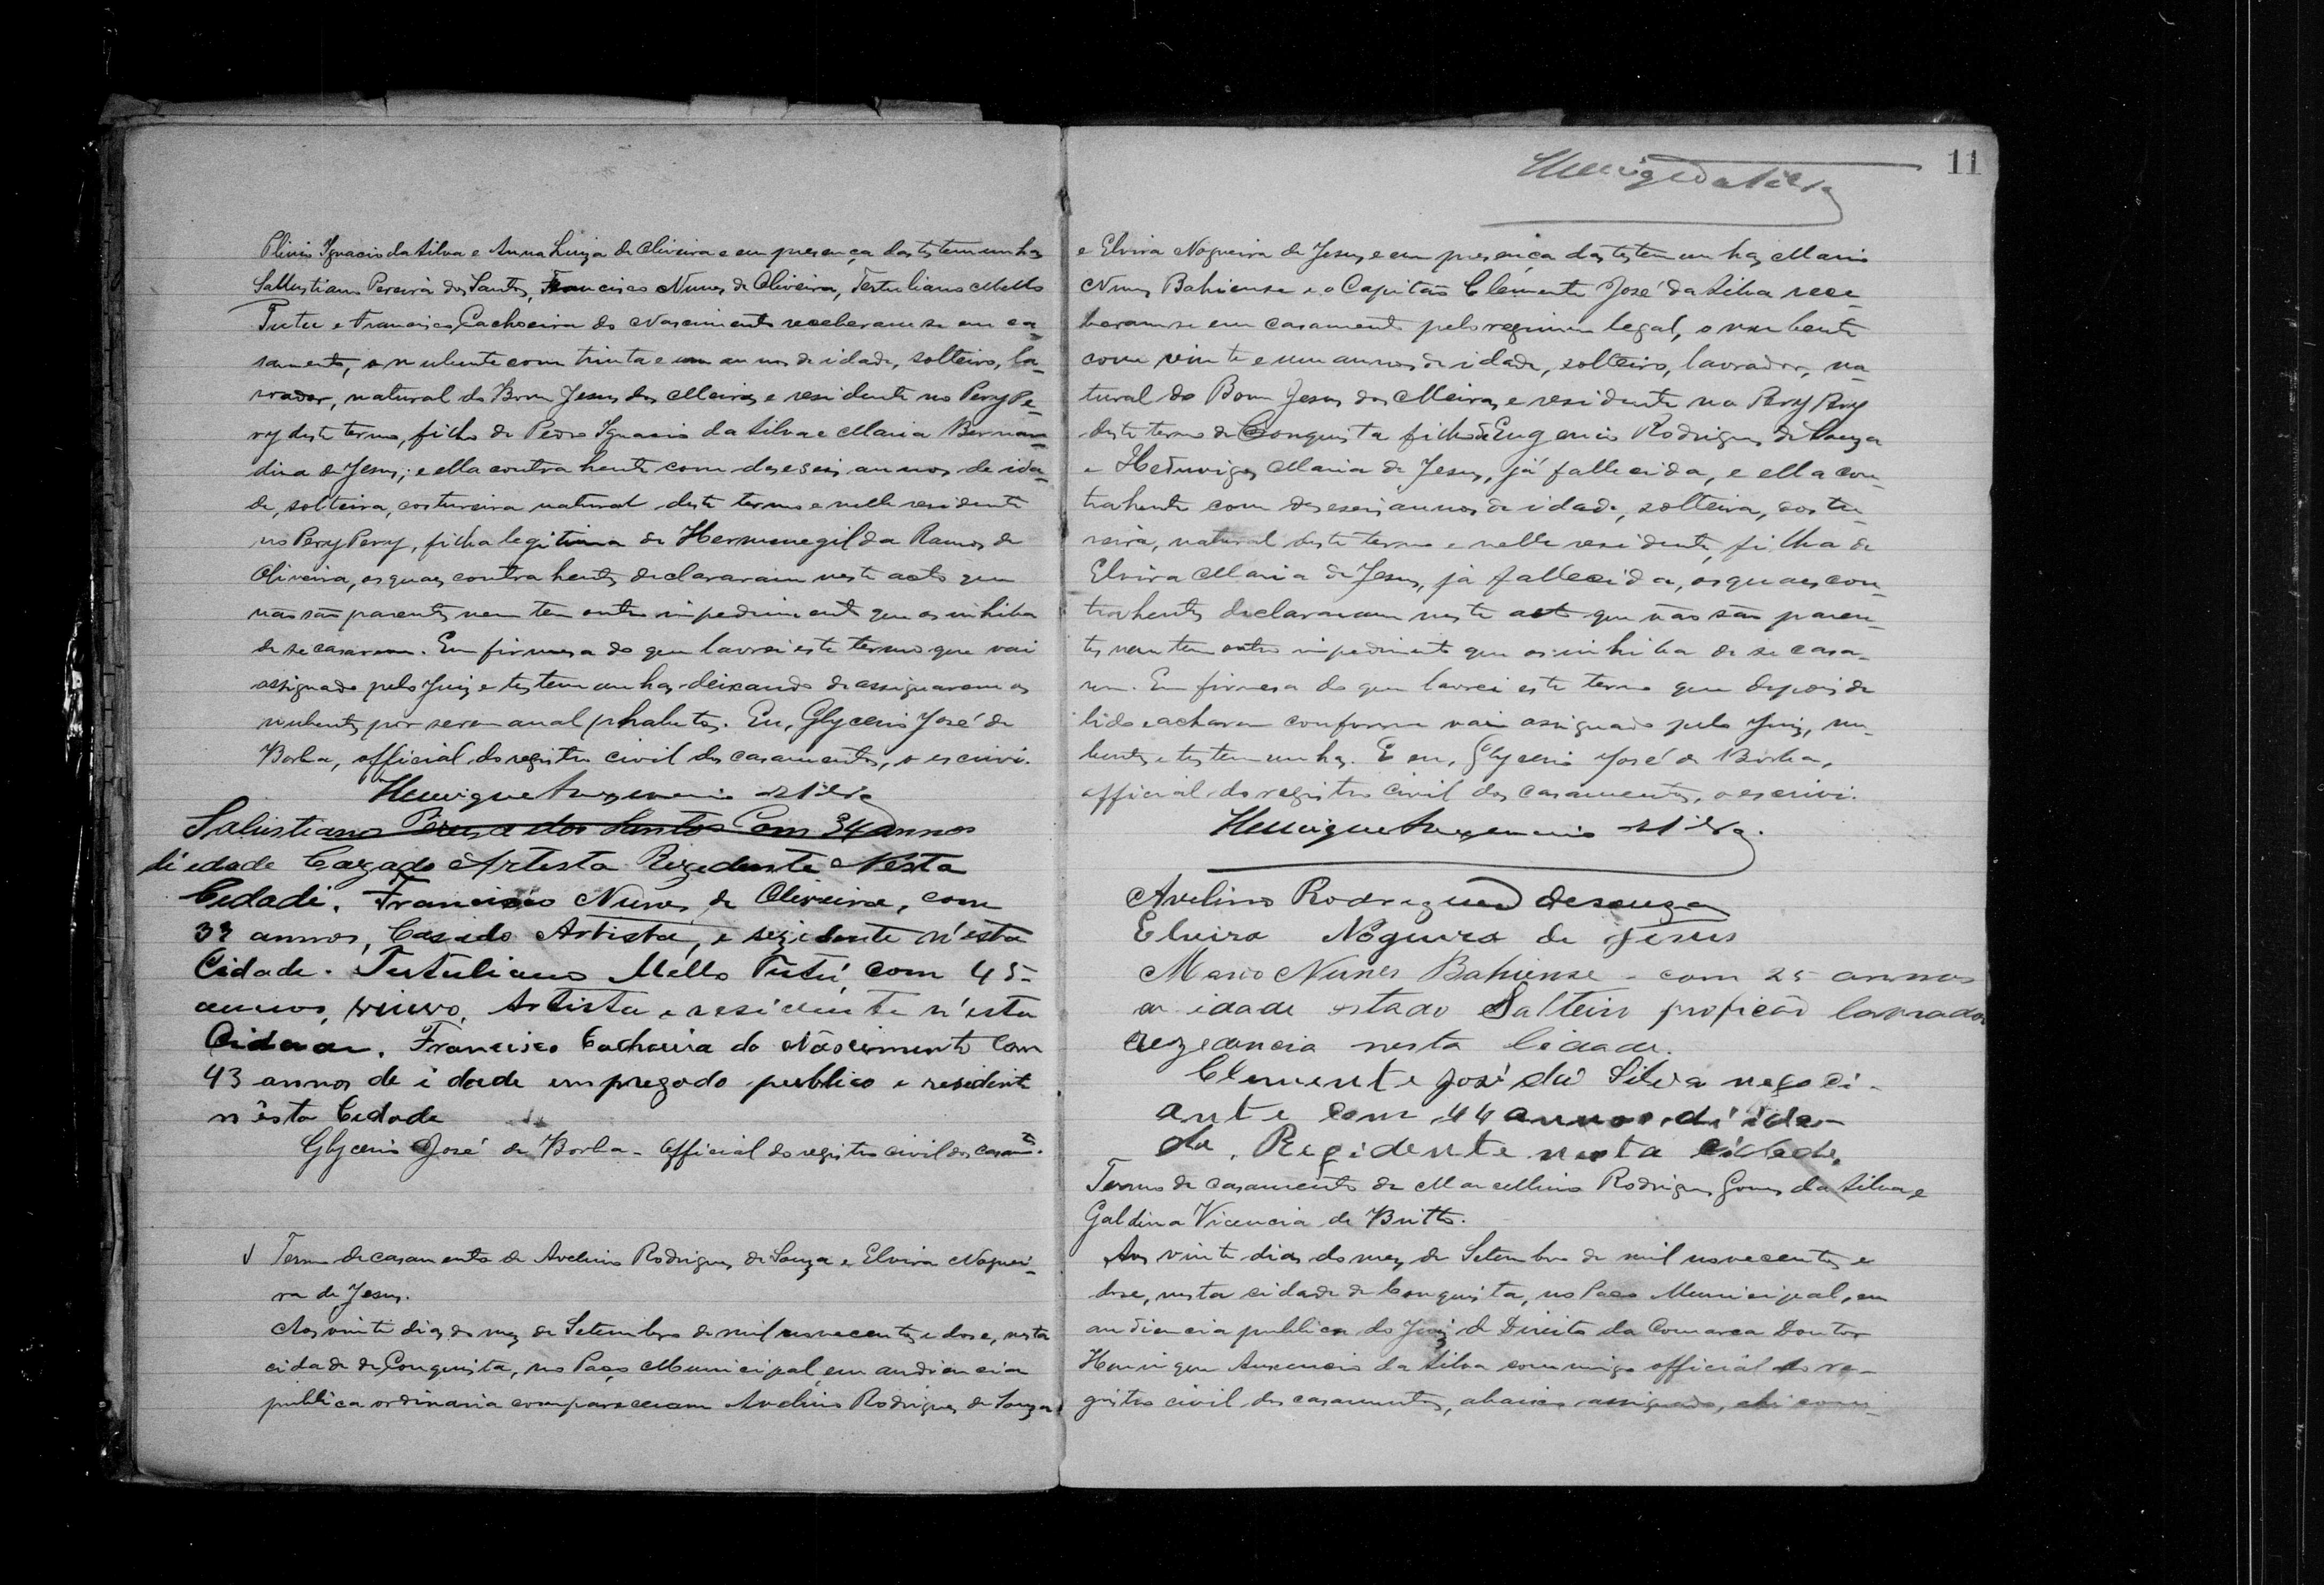 Olivio Ignacio da Silva e Anna Luiza de Oliveira e em presença das testemunhas
Sallustiano Pereira dos Santos, Francisco Nunes de Oliveira, Tertuliano Mello
Tutu e Francisco Cachoeira do Nascimento receberam-se em ca-
samento, o nubente com trinta e um annos de idade, solteiro, la-
vrador, natural do Bom Jesus dos Meiras e residente no Pery Pe-
ry deste termo, filho de Pedro Ignacio da Silva e Maria Bernar-
dina de Jesus; e ella contrahente com deseseis annos de ida-
de, solteira, costureira natural deste termo e nelle residente
no Pery Pery, filha legitima de Hermenegilda Ramos de
Oliveira, os quaes contrahentes declararam neste acto que
não são parentes nem tem outro impedimento que os inhiba
de se casarem. Em firmesa do que lavrei este termo que vai
assignado pelo Juiz e testemunhas deixando de assignarem os
nubentes por serem analphabetos. Eu, Glycerio José de
Borba, official do registro civil dos casamentos, o escrevi.
Henrique Auxencio da Silva
Salustiano Pereira dos Santos Com 34 annos
di edade Cazado Artesta Rezedente Nesta
Cidadi. Francisco Nunes de Oliveira, com
33 annos, Casado Artista, e rezidente n'esta
Cidade. Tertuliano Mello Tutú, com 45
annos, viuvo, Artista e residente n'esta
Cidade. Francisco Cachoeira do Nascimento Com
43 annos de idade empregado publico e residente
n'esta Cidade
Glycerio José de Borba - Official do registro civil dos casamtos.
Termo de casamento de Avelino Rodrigues de Souza e Elvira Noguei-
ra de Jesus.
Aos vinte dias do mez de Setembro de mil novecentos e dose, nesta
cidade de Conquista, no Paço Municipal, em audiencia
publica ordinaria compareceram Avelino Rodrigues de Souza
11
Henrique da Silva
e Elvira Nogueira de Jesus e em presença das testemunhas Mario
Nunes Bahiense e o Capitão Clemente José da Silva rece-
beram-se em casamento pelo regimen legal, o nubente
com vinte e um annos de idade, solteiro, lavrador, na-
tural do Bom Jesus dos Meiras e residente no Pery Pery
deste termo de Conquista filho de Eugenio Rodrigues de Souza
e Heduviges Maria de Jesus, já fallecida, e ella con-
trahente com deseseis annos de idade, solteira, costu-
reira, natural deste termo e nelle residente, filha de
Elvira Maria de Jesus, já fallecida, os quaes con-
trahentes declararam neste acto que não são paren-
tes nem tem outro impedimento que os inhiba de se casa-
rem. Em firmesa do que lavrei este termo que depois de
lido e acharem conforme vai assignado pelo Juiz, nu-
bentes e testemunhas. E eu, Glycerio José de Borba,
official do registro civil dos casamentos, o escrevi.
Henrique Auxencio da Silva.
Avelino Rodrigues de souza
Elvira Nogueira de Jesus
Mario Nunes Bahiense - com 25 annos
de idade estado Salteiro profição lavrador
rezedencia nesta Cidade.
Clemente José da Silva negoci-
ante com 44 annos di ida-
de. Rezidente nesta cidade.
Termo de casamento de Marcellino Rodrigues Gomes da Silva e
Galdina Vicencia de Britto.
Aos vinte dias do mez de Setembro de mil novecentos e
dose, nesta cidade de Conquista, no Paço Municipal, em
audiencia publica do Juiz de Direito da Comarca Doutor
Henrique Auxencio da Silva commigo official do re-
gistro civil dos casamentos, abaixo assignado, ahi com-